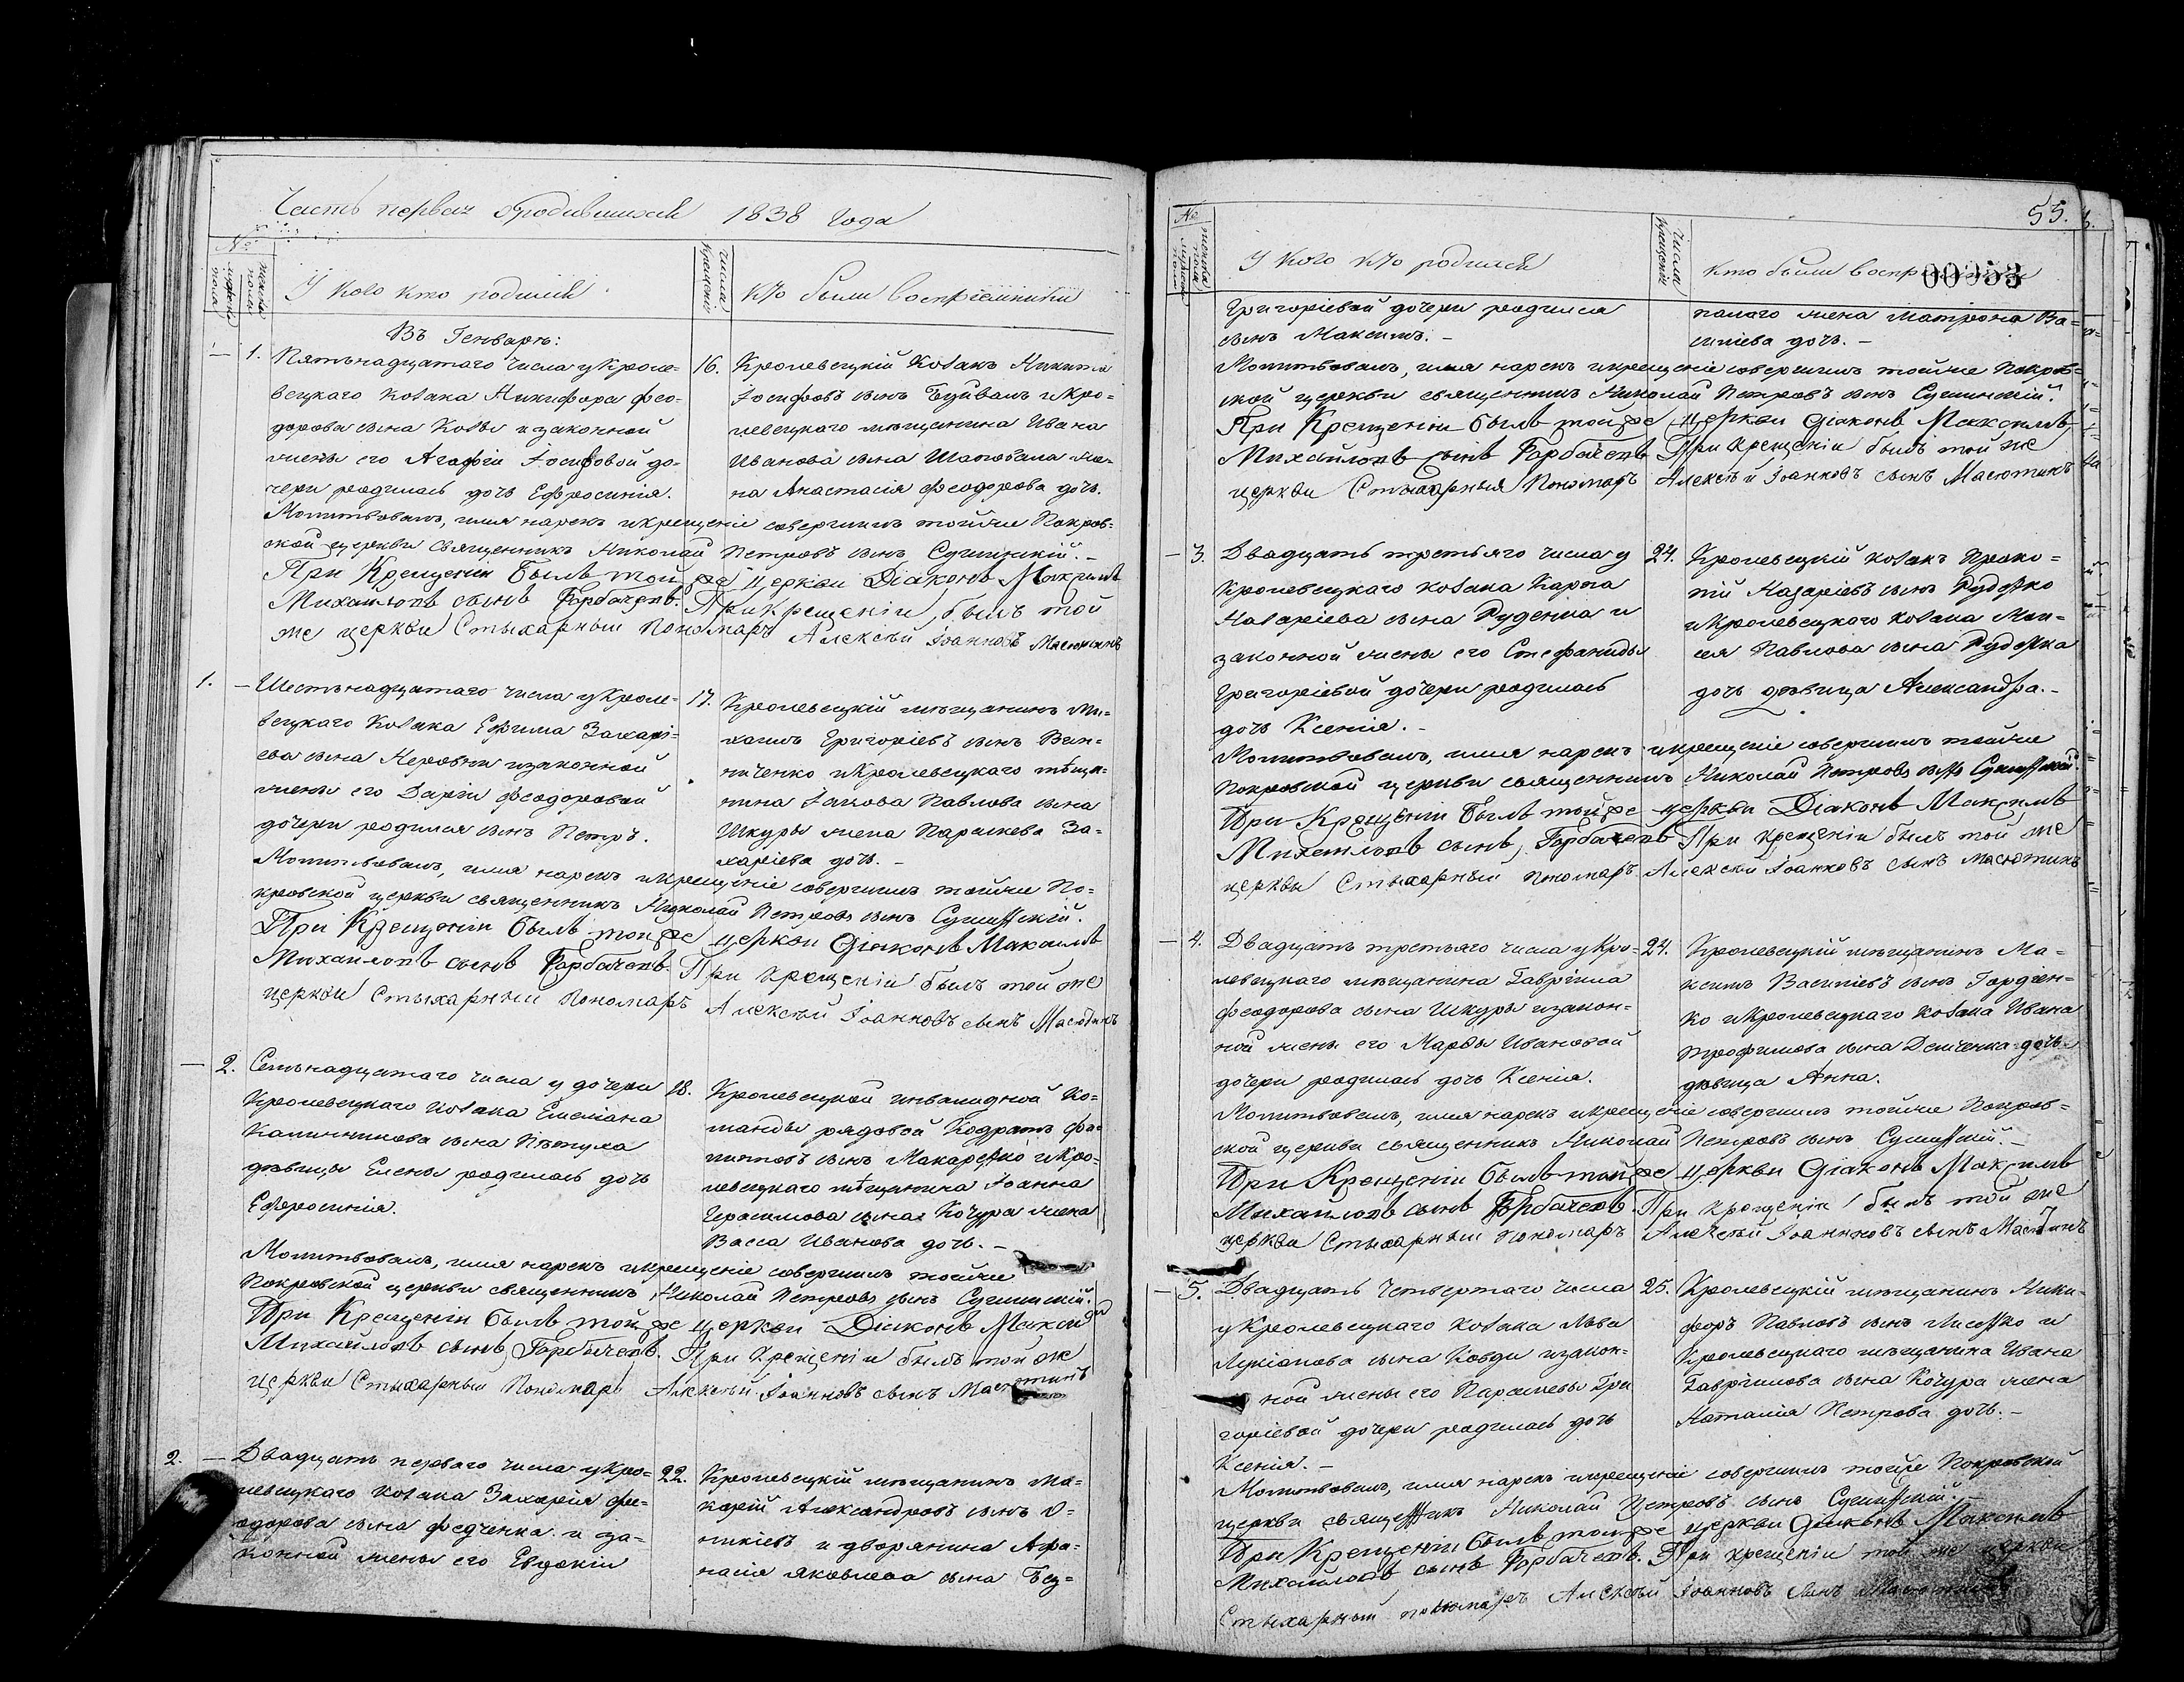 Часть первая о родившихся 1838 Года
№
мужеска пола
женска пола
У кого кто родился
числа крещенія
кто были воспріемники
Въ Генварѣ:
— 1. Пятьнадцатаго числа у Кроле=
вецкаго козака Никифора Фео=
дорова сына Козы и законной
жены его Агафіи Іосифовой до=
чери родилась дочь Ефросинія.
16. Кролевецкій козакъ Никита
Іосифовъ сынъ Буйвалъ и Кро=
левецкаго мѣщанина Ивана
Иванова сына Шаповала же=
на Анастасія Феодорова дочь.
Молитвовалъ, имя нарекъ и крещеніе совершилъ тойже Покров=
ской церкви священникъ Николай Петровъ сынъ Сушинскій. —
При Крещеніи былъ той же церкви Діаконъ Максимъ
Михайловъ сынъ Горбачевъ. При крещеніи былъ той
же церкви Стихарный Пономарь Алексѣй Іоанновъ Масютинъ
1. — Шестьнадцатаго числа у Кроле=
вецкаго козака Ефима Захарі=
ева сына Неровни и законной
жены его Даріи Феодоровой
дочери родился сынъ Петръ.
17. Кролевецкій мѣщанинъ Ми=
хаилъ Григоріевъ сынъ Вин=
ниченко и Кролевецкаго мѣща=
нина Іакова Павлова сына
Шкуры жена Параскева За=
харіева дочь. —
Молитвовалъ, имя нарекъ и крещеніе совершилъ тойже По=
кровской церкви священникъ Николай Петровъ сынъ Сушинскій.
При Крещеніи былъ той же церкви Діаконъ Максимъ
Михайловъ сынъ Горбачевъ. При крещеніи былъ той же
церкви Стихарный Пономарь Алексѣй Іоанновъ сынъ Масютинъ
— 2. Семьнадцатаго числа у дочери
Кролевецкаго козака Емеліана
Калинникова сына Пѣтуха
дѣвицы Елены родилась дочь
Ефросинія.
18. Кролевецкой инвалидной ко=
манды рядовой Кодратъ Фи=
липовъ сынъ Макаренко и Кро=
левецкаго мѣщанина Іоанна
Герасимова сына Кочура жена
Васса Иванова дочь. —
Молитвовалъ, имя нарекъ и крещеніе совершилъ тойже
Покровской церкви священникъ Николай Петровъ сынъ Сушинскій.
При Крещеніи былъ той же церкви Діаконъ Максим
Михайловъ сынъ Горбачевъ. При крещеніи былъ той же
церкви Стихарный Пономарь Алексѣй Іоанновъ сынъ Масютинъ
2. — Двадцать перваго числа у Кро=
левецкаго козака Захарія Фе=
одорова сына Федченка и за=
конной жены его Евдокіи
22. Кролевецкій мѣщанинъ Ма=
карій Александровъ сынъ О=
никіевъ и дворянина Афа=
насія Яковлева сына Без=
55.
№
женска пола
мужеска пола
У кого кто родился
числа крещенія
кто были воспр
00053
Григоріевой дочери родился
сынъ Максимъ. —
палаго жена Матрона Ва=
силіева дочь. —
Молитвовалъ, имя нарекъ и крещеніе совершилъ тойже Покров=
ской церкви священникъ Николай Петровъ сынъ Сушинскій.
При Крещеніи былъ той же церкви Діаконъ Максимъ
Михайловъ сынъ Горбачевъ При крещеніи былъ той же
церкви Стихарный Пономарь Алексѣй Іоанновъ сынъ Масютинъ
— 3. Двадцать третьяго числа у
Кролевецкаго козака Карпа
Назаріева сына Руденка и
законной жены его Стефаниды
Григоріевой дочери родилась
дочь Ксенія. —
24. Кролевецкій козакъ Проко=
пій Назаріевъ сынъ Руденко
и Кролевецкаго козака Мои=
сея Павлова сына Руденка
дочь дѣвица Александра. —
Молитвовалъ, имя нарекъ и крещеніе совершилъ тойже
Покровской церкви священникъ Николай Петровъ сынъ Сушинскій.
При Крещеніи былъ той же церкви Діаконъ Максимъ
Михайловъ сынъ Горбачевъ При крещеніи былъ той же
церкви Стихарный пономарь Алексѣй Іоанновъ сынъ Масютинъ
— 4. Двадцать третьяго числа у Кро=
левецкаго мѣщанина Гавріила
Феодорова сына Шкуры и закон=
ной жены его Марфы Ивановой
дочери родилась дочь Ксенія.
24. Кролевецкій мѣщанинъ Ма=
ксимъ Василіевъ сынъ Гордіен=
ко и Кролевецкаго козака Ивана
Трофимова сына Демченка дочь
дѣвица Анна.
Молитвовалъ, имя нарекъ и крещеніе совершилъ тойже Покров=
ской церкви священникъ Николай Петровъ сынъ Сушинскій. —
При Крещеніи былъ той же церкви Діаконъ Максимъ
Михайловъ сынъ Горбачевъ. При крещеніи былъ той же
церкви Стихарный пономарь Алексѣй Іоанновъ сынъ Масютинъ
— 5. Двадцать четвертаго числа
у Кролевецкаго козака Льва
Лукіанова сына Ковди и закон=
ной жены его Параскевы Гри
горіевой дочери родилась дочь
Ксенія. —
25. Кролевецкій мѣщанинъ Ники=
форъ Павловъ сынъ Лисенко и
Кролевецкаго мѣщанина Ивана
Гавріилова сына Кочура жена
Наталія Петрова дочь. —
Молитвовалъ, имя нарекъ и крещеніе совершилъ тойже Покровской
церкви священникъ Николай Петровъ сынъ Сушинскій. —
При Крещеніи былъ той же церкви Діаконъ Максимъ
Михайловъ сынъ Горбачевъ. При крещеніи той же церкви
Стихарный пономарь Алексѣй Іоанновъ сынъ Масютинъ